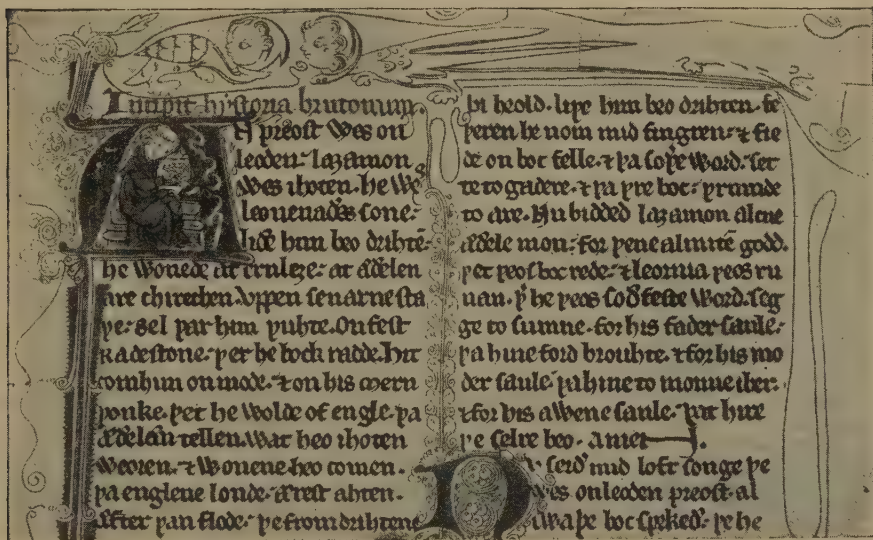 Incipit hystoria brutonum.
AN preost wes on
leoden: laȝamon
wes ihoten. he wes
leouenaðes sone:
liðe him beo drihtē.
he wonede at ernleȝe: at æðelen
are chirechen. vppen seuarne sta
þe: sel þar him þuhte. on fest
Radestone: þer he bock radde. hit
com him on mode. ⁊ on his mern
þonke. þet he wolde of engle. þa
æðelæn tellen. wat heo ihoten
weoren. ⁊ wonene heo comen.
þa englene londe. ærest ahten.
æfter þan flode. þe from drihtene
bi heold. liþe him beo drihten. fe
þeren he nom mid fingren. ⁊ fie
de on boc felle. ⁊ þa soþe word. set
te to gadere. ⁊ þa þre boc: þrumde
to are. Nu bidded laȝamon alcne
æðele mon: for þene almitē godd.
þet þeos boc rede. ⁊ leornia þeos ru
nan. þ̄ he þeos soðfeste word. seg
ge to sumne. for his fader saule:
þa hine forð brouhte. ⁊ for his mo
der saule. þa hine to monne iber.
⁊ for his awene saule. þat hire
þe selre beo. amen.
Nv seið mid loft songe þe
wes on leoden preost. al
swa þe boc spekeð: þe he